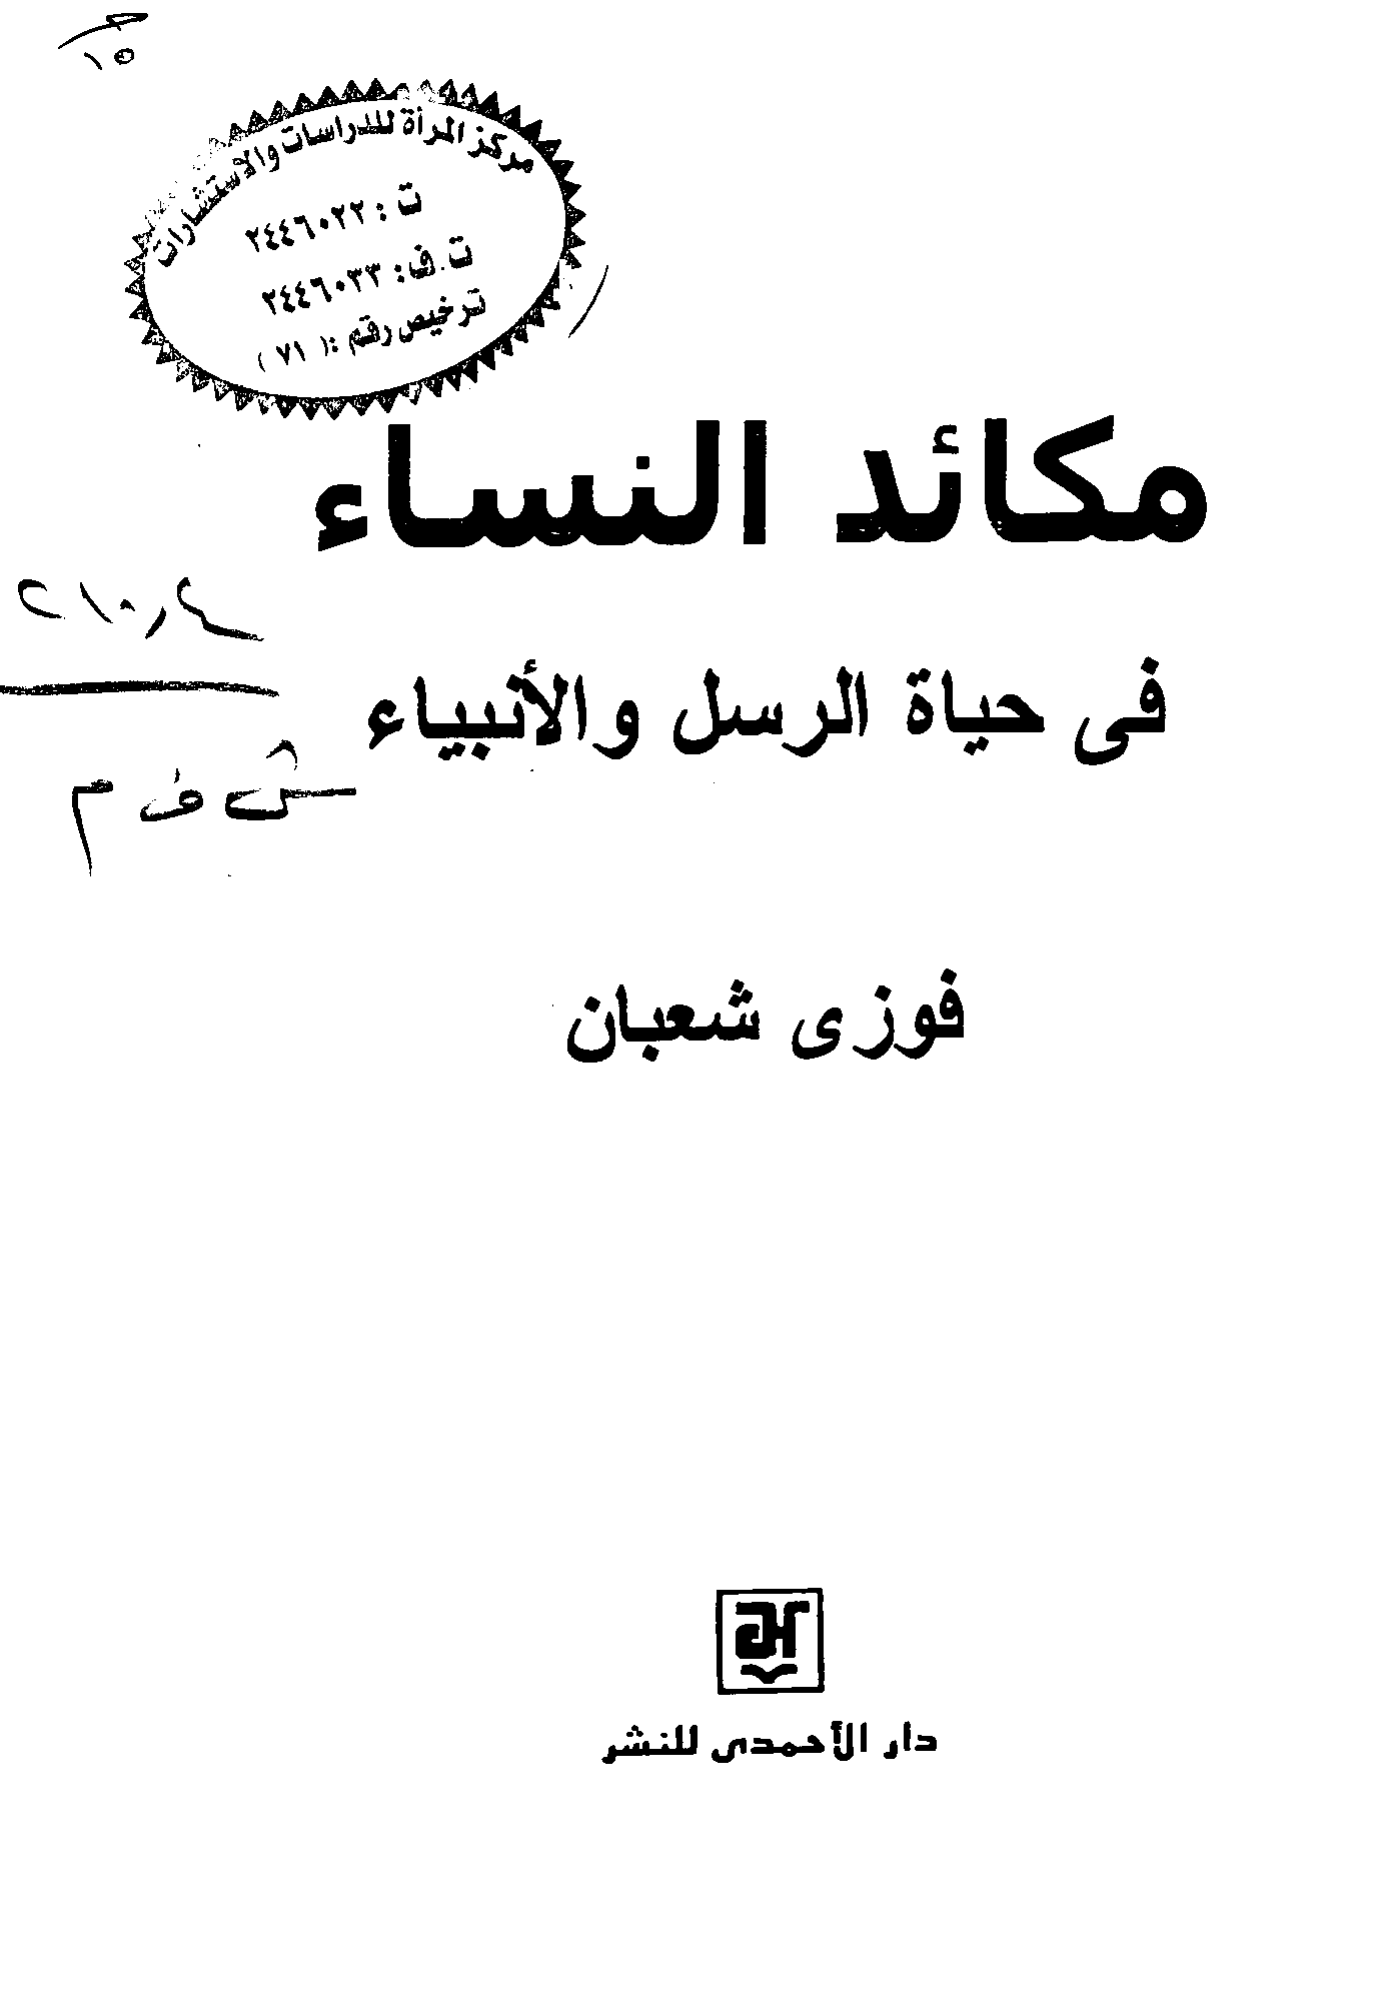 ١٥
مركز المرأة للدراسات والاستشارات
ت : ٢٤٤٦٠٢٢
ت.ف: ٢٤٤٦٠٣٣
ترخيص رقم :( ٧١ )
مكائد النساء
٢١٠,٤
فى حياة الرسل والأنبياء
ش ف م
فوزى شعبان
دار الأحمدى للنشر